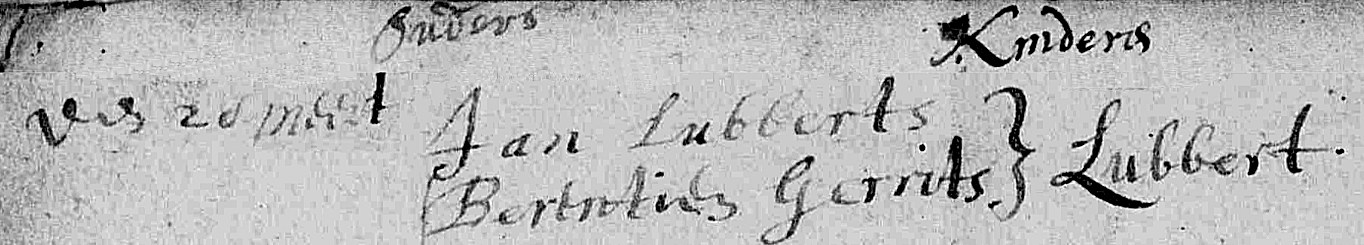 Ouders Kinders
Den 20 meert Jan Lubberts
Bertntien Gerrits. } Lubbert.